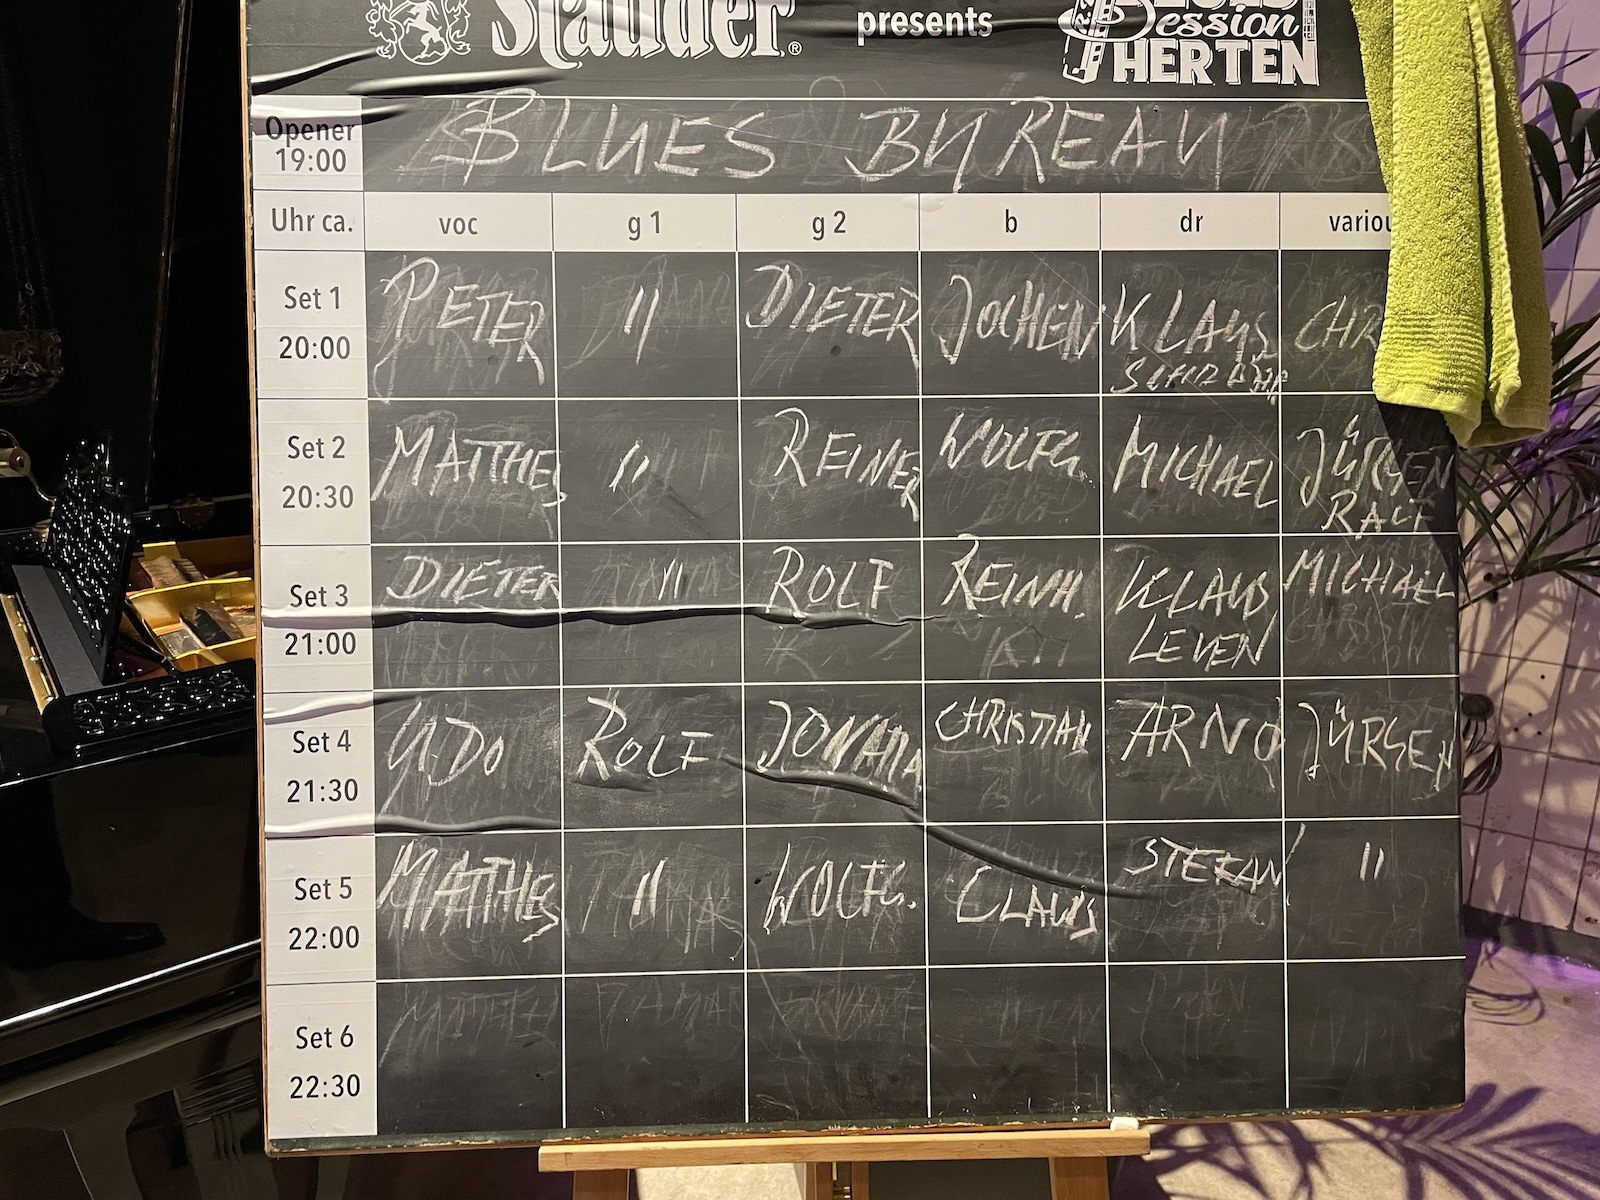 Stauder®
presents
Session
HERTEN
Opener
19:00
BLUES BUREAU
Uhr ca. voc g 1 g 2 b dr
Set 1
20:00
PETER " DIETER JOCHEN KLAUS
Set 2
20:30
MATTHES " REINER WOLFG. MICHAEL JÜRGEN
RALF
Set 3
21:00
DIETER " ROLF REINH. KLAUS MICHAEL
LEVEN
Set 4
21:30
UDO ROLF CHRISTIAN ARNO JÜRGEN
Set 5
22:00
MATTHES " WOLFG. CLAUS STEFAN "
Set 6
22:30